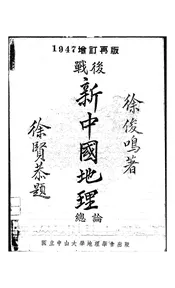 1947增訂再版
戰後
新中國地理
總論
徐俊鳴著
徐賢恭題
國立中山大學地理學會出版